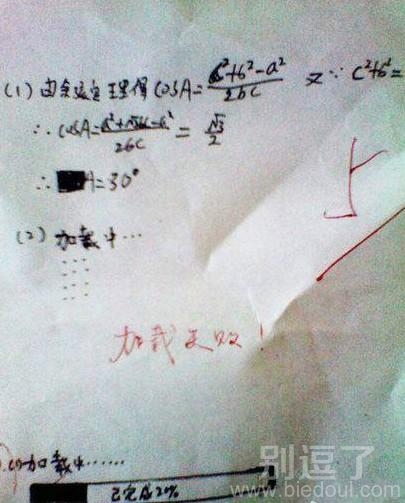 (1) 由余弦定理得 COSA=(c²+b²-a²)/2bc 又∵ c²+b²=
∴ COSA=(a²+√3bc-a²)/2bc = √3/2
∴ A=30°
(2) 加载中…
加载失败!
加载中……
已完成20%
别逗了
www.biedoul.com